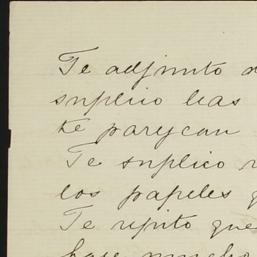 Te adjunto
suplico leas
te parezcan
Te suplico
los papeles
Te repito que
hace mucho